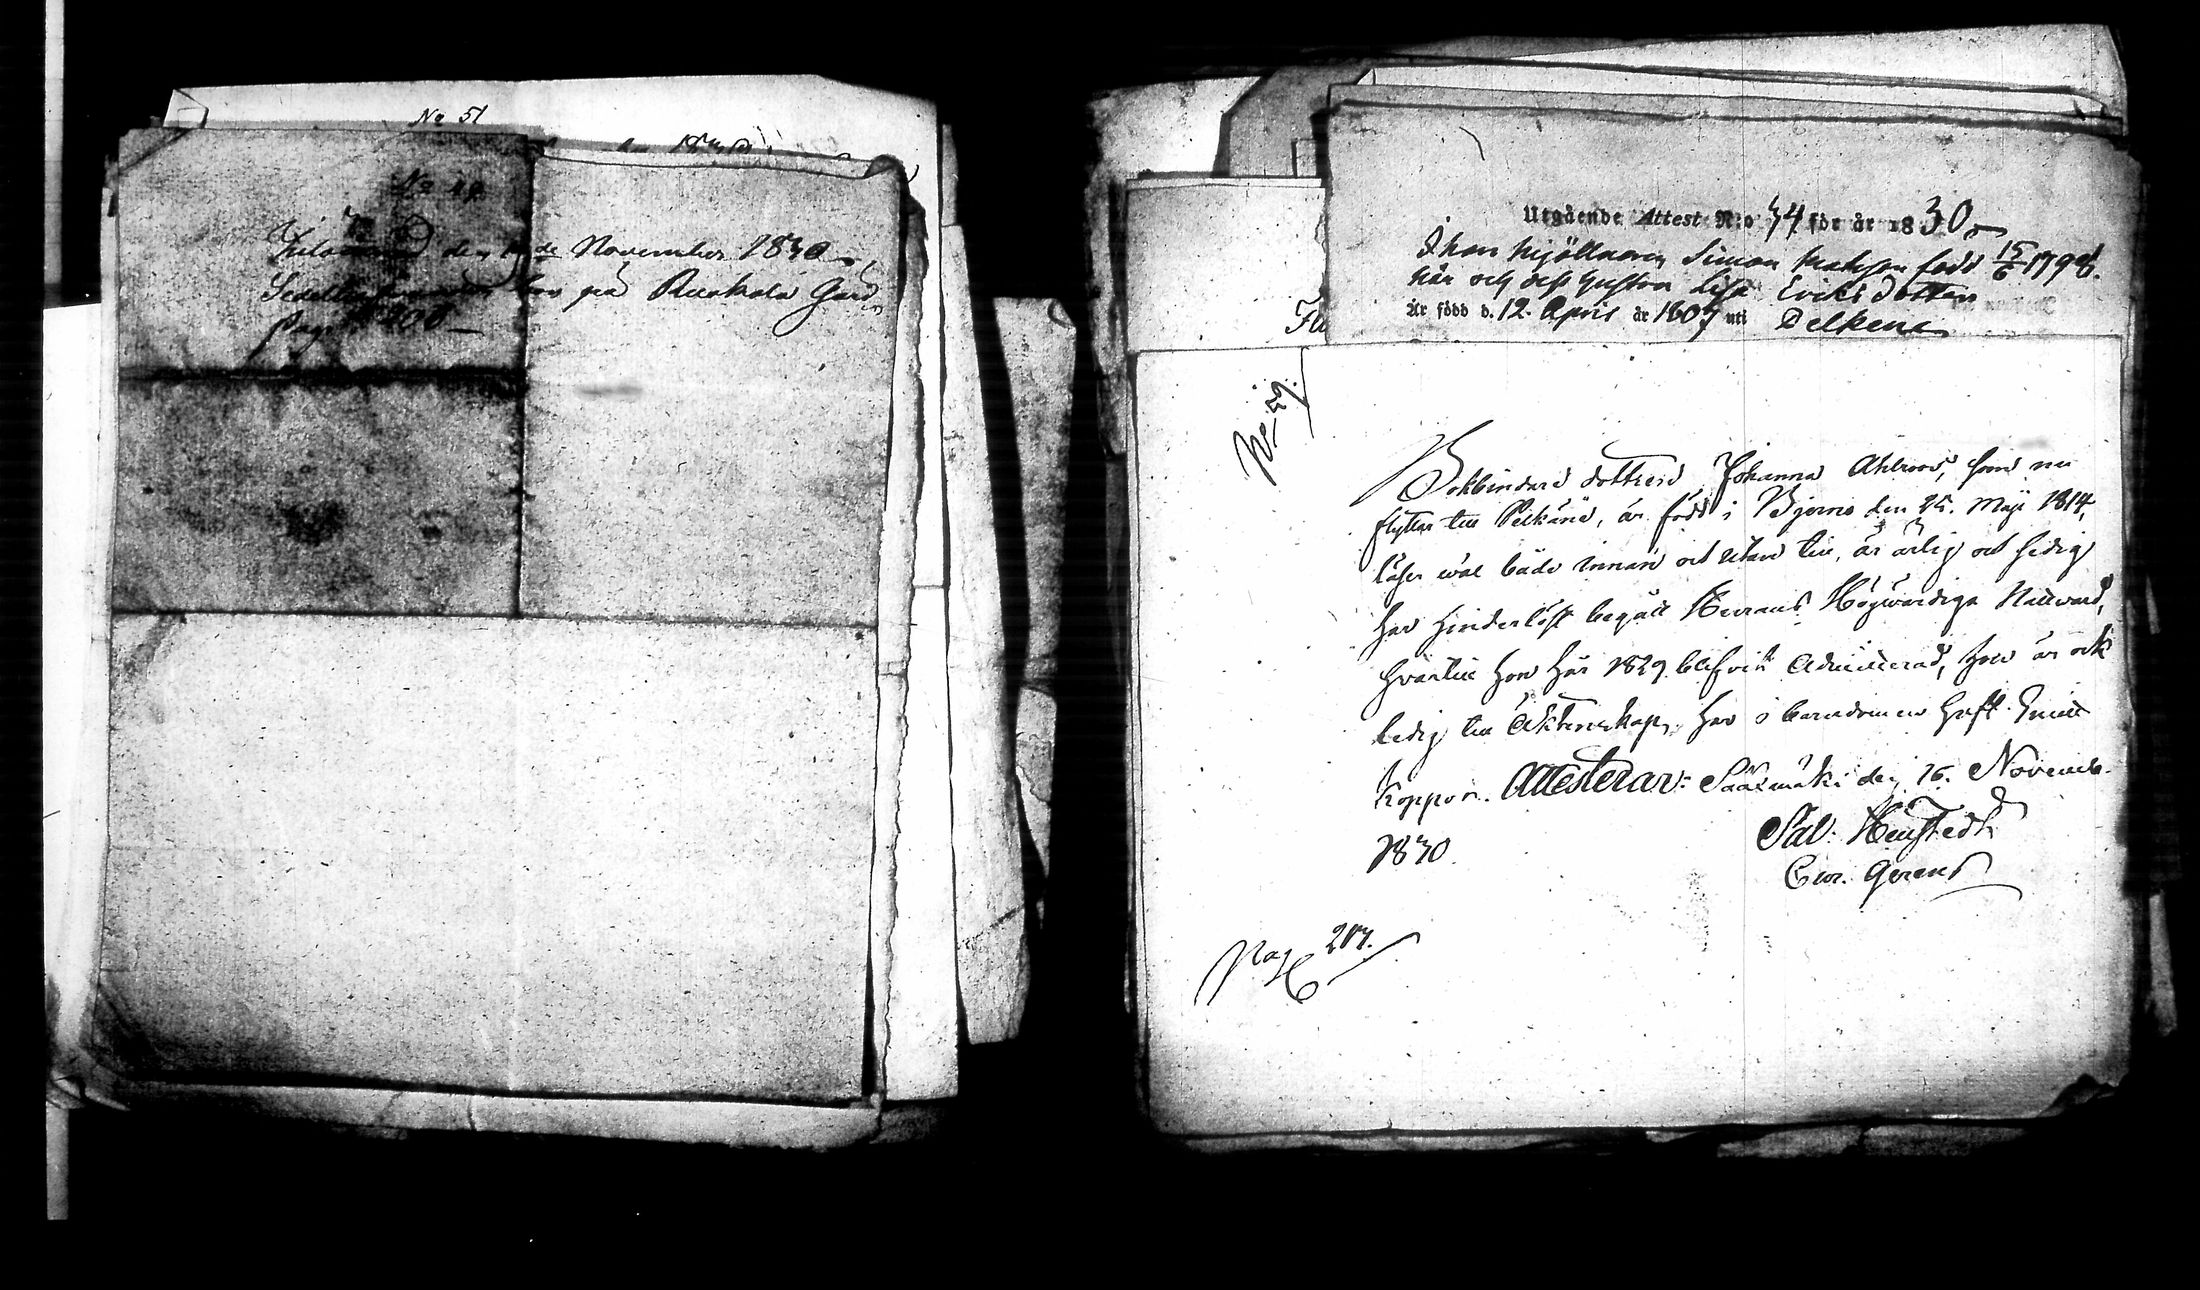 No 51
No 49
Inlemnad den de November 1830
på Ruokola Gård
Pag. 200
Utgående Attest N:o 34 för år 1830
Simon Matsson född 15/6 179
här och dess hustru Lisa Eriksdotter
är född d. 12 April år 1807 uti Pelkene
No
Bokbindare dottren Johanna Ahlroos, som nu
flyttar till Pelkäne, är född i Bjerno den 25. Maji 1814,
läser wäl både innan och utan till, är ärlig och sedig
har hinderlöst begått Herrans Högwärdiga Nattward,
hvartill hon här 1829 blifvit Admitterad, hon är ock
ledig till Äktenskap, har i barndomen haft
Koppor. Attesterar: Sääxmäki den 16. Novemb.
1830.
Sal:
Cur. Gerens
Pag 207.